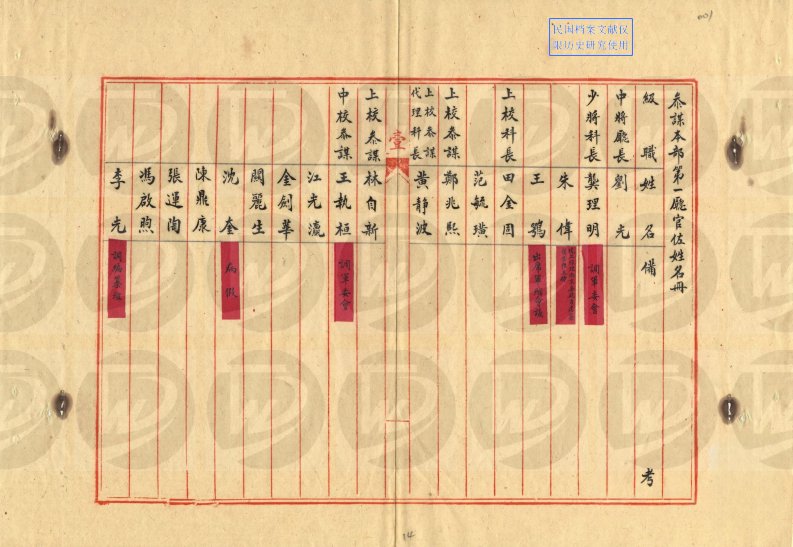 民国档案文献仅
限历史研究使用
001
參謀本部第一廳官佐姓名冊
級職 姓名 備考
中將廳長 劉光
少將科長 龔理明 調軍委會
朱偉
王鶚
上校科長 田金固
范毓璜
上校參謀 鄭兆熙
上校參謀代理科長 黃靜波
壹
上校參謀 林自新
中校參謀 王執桓 調軍委會
江光瀛
金劍華
關麗生
沈奎 病假
陳鼎康
張運陶
馮啟煦
李光
14